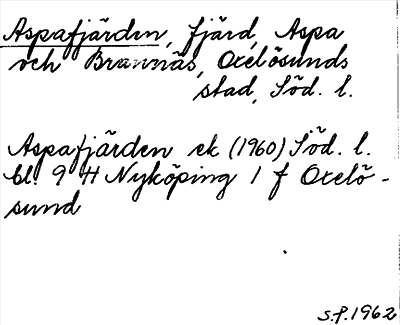 Aspafjärden, fjärd, Aspa
och Brannäs, Oxelösunds
stad, Söd. l.
Aspafjärden ek (1960) Söd. l.
bl. 9 H Nyköping 1 f Oxelö-
sund
S.P. 1962